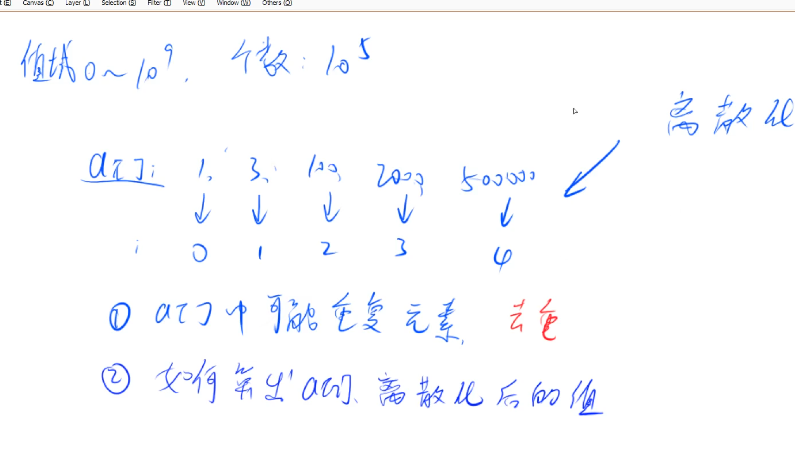 Canvas (C) Layer (L) Selection (S) Filter (T) View (V) Window (W) Others (O)
值域0~10⁹. 个数: 10⁵
离散化
a[]: 1, 3, 100, 2000, 500000
i 0 1 2 3 4
① a[]中可能重复元素, 去重
② 如何算出a[i]离散化后的值